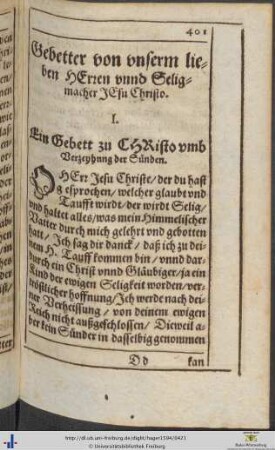 401
Gebetter von vnserm lie-
ben HErren vnnd Selig-
macher JEsu Christo.
I.
Ein Gebett zu CHRisto vmb
Verzeyhung der Sünden.
O HErr Jesu Christe/ der du hast
gesprochen/ welcher glaubt vnd
Taufft wirdt/ der wirdt Selig/
vnd haltet alles/ was mein Himmelischer
Vatter durch mich gelehrt vnd gebotten
hatt/ Ich sag dir danck/ daß ich zu dei-
nem H. Tauff kommen bin/ vnnd dar-
durch ein Christ vnnd Gläubiger/ ja ein
Kind der ewigen Seligkeit worden/ ver-
tröstlicher hoffnung/ Ich werde nach dei-
ner Verheissung/ von deinem ewigen
Reich nicht außgeschlossen/ Dieweil a-
ber kein Sünder in dasselbig genommen
Dd kan
http://dl.ub.uni-freiburg.de/diglit/hager1594/0421
© Universitätsbibliothek Freiburg
Baden-Württemberg